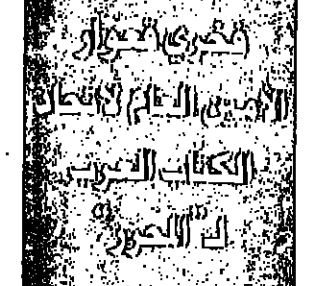 فخري قعوار
الأمين العام لاتحاد
الكتاب العرب
لـ"المحرر"